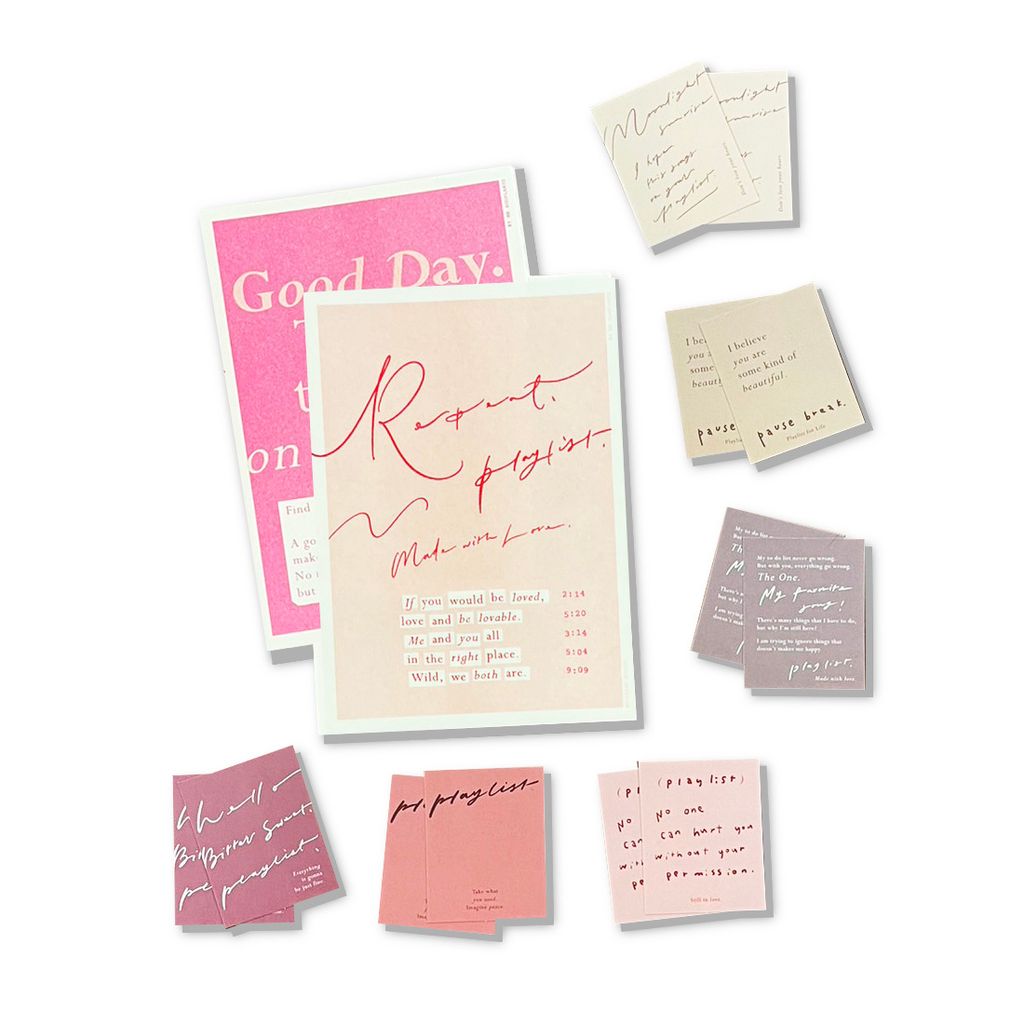 Good Day.
on
Find
A go
make
No
but
Repeat.
playlist.
Made with Love.
If you would be loved, 2:14
love and be lovable. 5:20
Me and you all 3:14
in the right place. 5:04
Wild, we both are. 9:09
Moonlight
sunrise
I hope
this songs
on your
playlist.
Don't lose your hours
Don't lose your hours
I believe
you are
some kind of
beautiful.
pause break.
Playlist for Life
I be
you a
some
beauti
pause
Playlis
My to do list never go wrong.
But with you, everything go wrong.
The One.
My favorite
song!
There's many things that I love to do,
but why I'm still here?
I am trying to ignore things that
doesn't makes me happy.
playlist.
Made with love
My to do list
But with you
The
There's
but why I
I am tryin
doesn't mak
hello
Bitter Sweet.
playlist.
Everything
is gonna
be just fine
playlist
Take what
you need.
Imagine peace
(playlist)
No one
can hurt you
without your
permission.
Still in love
(pl
No
can
with
pe